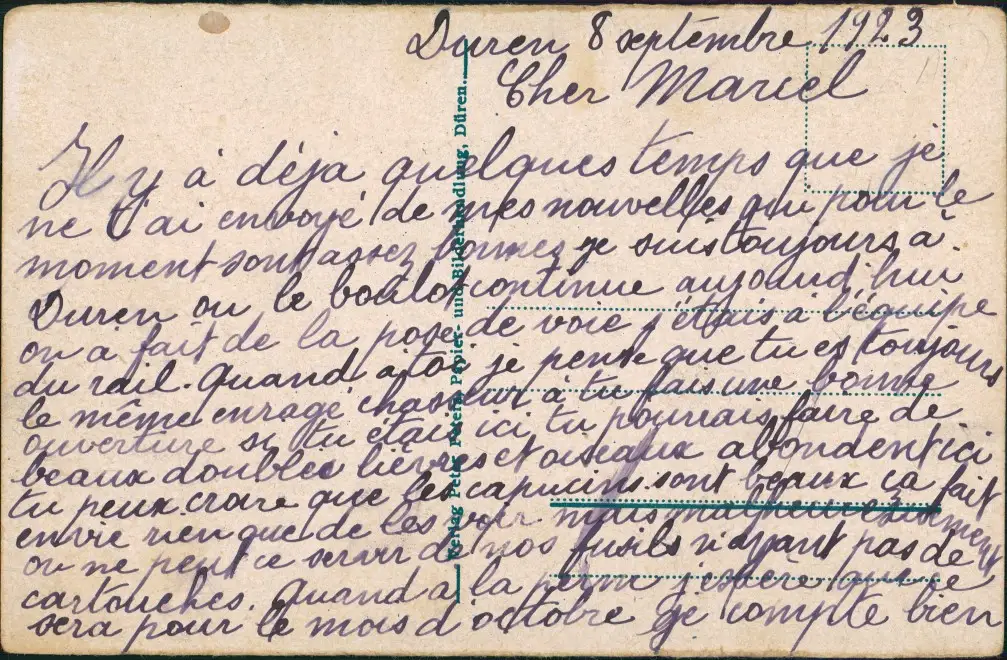 Duren 8 septembre 1923
Cher Marcel
Il y à déja quelques temps que je
ne t'ai envoyé de mes nouvelles qui pour le
moment sont assez bonnes je suis toujours à
Duren ou le boulot continue aujourd'hui
on a fait de la pose de voie j'étais à l'équipe
du rail. Quand à toi je pense que tu es toujours
le même enragé chasseur à tu fais une bonne
ouverture si tu étais ici tu pourrais faire de
beaux doublés lièvres et oiseaux abondent ici
tu peux croire que les capucins sont beaux ça fait
envie rien que de les voir mais malheureusement
on ne peut ce servir de nos fusils n'ayant pas de
cartouches. Quand à la perm j'espère que ce
sera pour le mois d'octobre je compte bien
Verlag Peter Peters, Papier- und Bilderhandlung, Düren.